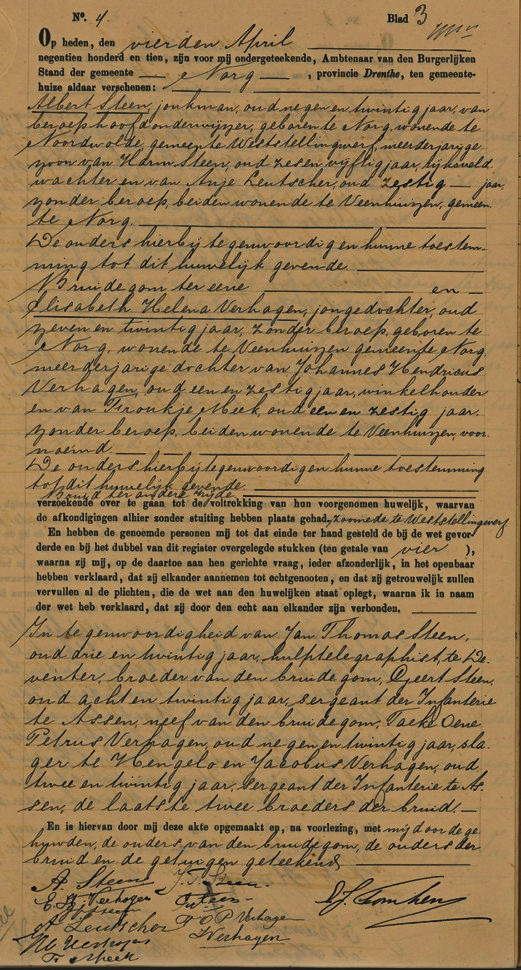 No. 4. Blad 3
Op heden, den vierden April
negentien honderd en tien, zijn voor mij ondergeteekende, Ambtenaar van den Burgerlijken
Stand der gemeente Norg, provincie Drenthe, ten gemeente-
huize aldaar verschenen:
Albert Steen, jonkman, oud negen en twintig jaar, van
beroep hoofdonderwijzer, geboren te Norg, wonende te
Noordwolde, gemeente Weststellingwerf, meerderjarige
zoon van Harm Steen, oud zes en vijftig jaar, rijksveld
wachter en van Anje Leutscher, oud zestig jaar,
zonder beroep, beiden wonende te Veenhuizen, gemeen
te Norg.
De ouders hierbij tegenwoordig en hunne toestem-
ming tot dit huwelijk gevende.
Bruidegom ter eene en
Elisabeth Helena Verhagen, jongedochter, oud
zeven en twintig jaar, zonder beroep, geboren te
Norg, wonende te Veenhuizen gemeente Norg,
meerderjarige dochter van Johannes Hendricus
Verhagen, oud een en zestig jaar, winkelhouder
en van Froukje Meek, oud een en zestig jaar.
zonder beroep, beiden wonende te Veenhuizen, voor
noemd
De ouders hierbij tegenwoordig en hunne toestemming
tot dit huwelijk gevende.
Bruid ter andere zijde
verzoekende over te gaan tot de voltrekking van hun voorgenomen huwelijk, waarvan
de afkondigingen alhier zonder stuiting hebben plaats gehad, zoomede te Weststellingwerf
En hebben de genoemde personen mij tot dat einde ter hand gesteld de bij de wet gevor-
derde en bij het dubbel van dit register overgelegde stukken (ten getale van vier),
waarna zij mij, op de daartoe aan hen gerichte vraag, ieder afzonderlijk, in het openbaar
hebben verklaard, dat zij elkander aannemen tot echtgenooten, en dat zij getrouwelijk zullen
vervullen al de plichten, die de wet aan den huwelijken staat oplegt, waarna ik in naam
der wet heb verklaard, dat zij door den echt aan elkander zijn verbonden.
In tegenwoordigheid van Jan Thomas Steen,
oud drie en twintig jaar, hulptelegraphist, te De-
venter, broeder van den bruidegom, Geert Steen,
oud acht en twintig jaar, sergeant der Infanterie
te Assen, neef van den bruidegom, Oene
Petrus Verhagen, oud negen en twintig jaar, sla-
ger te Hengelo en Jacobus Verhagen, oud
twee en twintig jaar, sergeant der Infanterie te As-
sen, de laatste twee broeders der bruid.
En is hiervan door mij deze akte opgemaakt en, na voorlezing, met mij door de ge-
huwden, de ouders van den bruidegom, de ouders der
bruid en de getuigen geteekend
A. Steen J. T. Steen
E. H. Verhagen G Steen
A Leutscher T O P Verhage
Verhagen
F. Meek